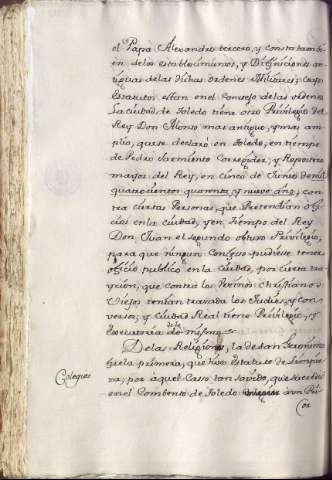 el Papa Alexandro tercero, y consta tam bi
en de los establecimientos, y Difiniciones an
tiguas de las dichas ordenes Militares; cuyos
Estatutos estan en el Consejo de las ordenes
La ciudad de Toledo tiene otro Privilegio del
Rey Don Alonso mas antiguo, y mas am
plio, que se declaró en Toledo, en tiempo
de Pedro Sarmiento Corregidor, y Repostero
mayor del Rey, en cinco de Junio de mil
quatrocientos quarenta, y nuebe años, con
tra ciertas Personas, que Pretendian ofi
cios en la ciudad, y en tiempo del Rey
Don Juan el segundo obtuvo Privilegio,
para que ningun Confeso pudiese tener
oficio publico en la ciudad, por cierta tray
cion, que contra los Vecinos christianos
Viejos tenian tratada los Judios, y con
versos; y Ciudad Real tiene Privilegio, y
Executoria de lo mismo
De las Religiones, la de San Geronimo
fue la primera, que tubo Estatuto de Limpie
za; por aquel Casso tan savido, que sucedió
Colegios
en el Combento de Toledo a un Rel